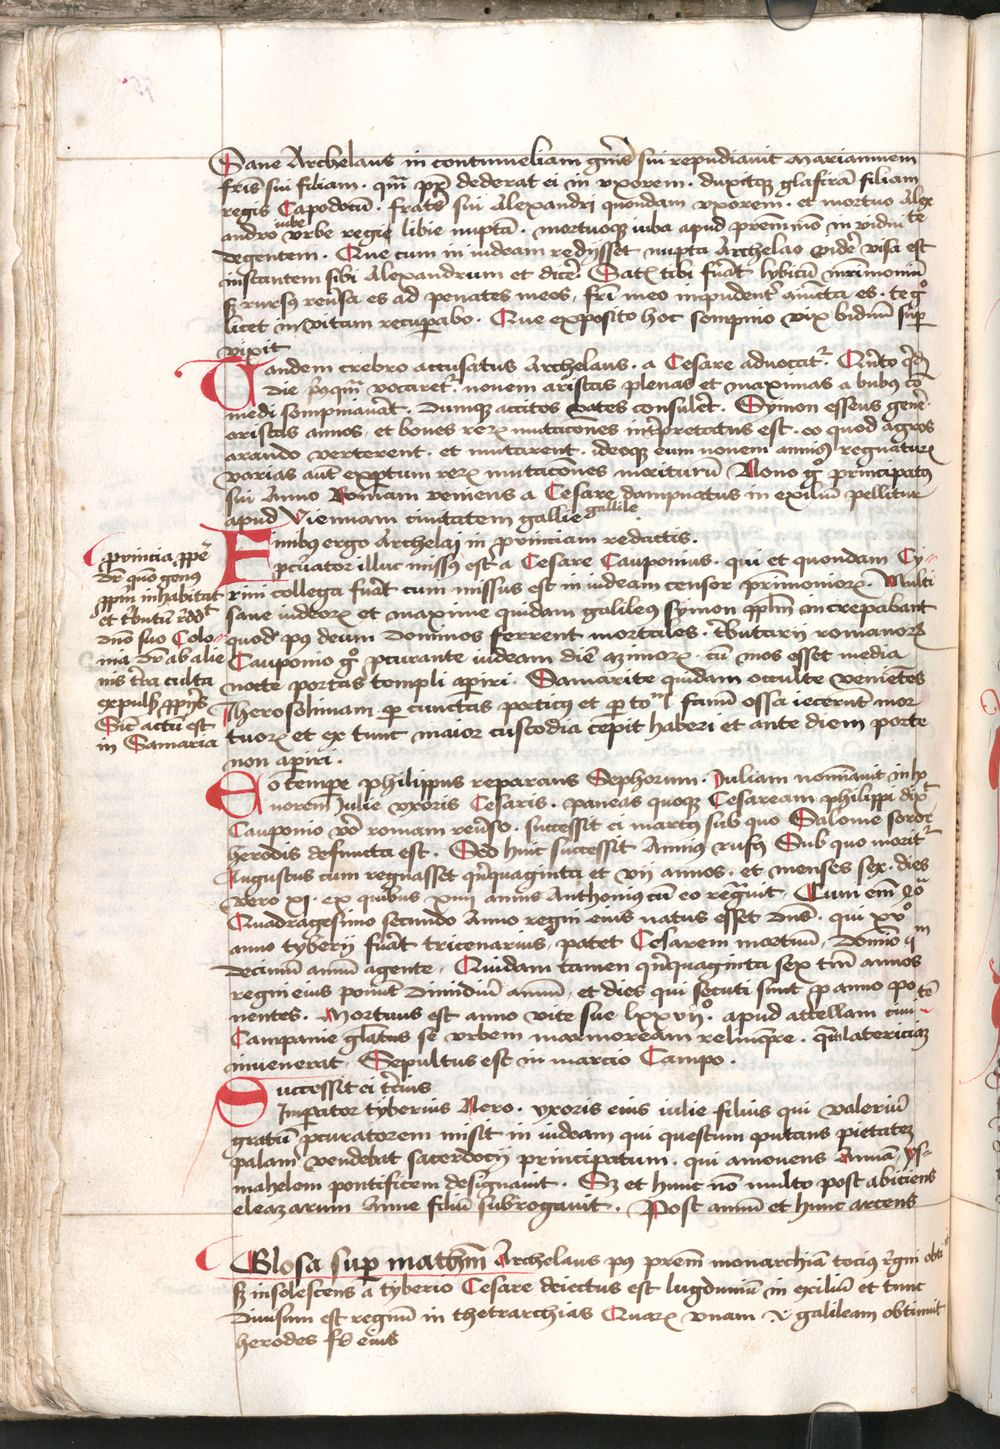 Sane Archelaus in contumeliam gñis sui repudiavit mariamnem
fris sui filiam. quã pr dederat ei in uxorem. duxitque glafirã filiam
regis Capodocũ. fratris sui Alexandri quondam uxorem. et mortuo Alex
andro iube urbe regis libie nuptã. mortuoque iuba apud premĩmõ in vidui te
degentem. Que cum in iudeam redijsset nupta Archelao videre visa est
instantem sibi Alexandrum et dicere. Satis tibi fuerat lybicũ mrimoniũ
sz rursus reversa es ad penates meos, fri meo impudenter iuncta es. te go
licet invitam recuperabo. Que exposito hoc sompnio vix biduũ super
vixit
Tandem crebro accusatus Archelaus. a Cesare advocatur. Quinto
die priusquam vocaretur. novem aristas plenas et maximas a bubus co
medi sompniaverat. dumque accitos vates consuleret. Symon esseus genere.
aristas annos, et boves rerum mutacones interpretatus est. eo quod agros
arando verterent. et mutarent. ideoque eum novem annis regnaturum
varias aut expertum rerum mutacones moriturũ. Nono go principatus
sui Anno Romam veniens a Cesare dampnatus in exiliũ pellitur
apud Viennam civitatem gallie gallile
Finibus ergo Archelaj in provinciam redactis.
procurator illuc missus est a Cesare Cauponius. qui et quondam Cy-
rini collega fuerat cum missus est in iudeam censor primoniorum. Multi
sane iudeorum et maxime quidam galileus symon populum increpabant
quod post deum dominos ferrent mortales. tributarij romanorum
Cauponio go procurante iudeam die azimorum. cũ mos esset media
nocte portas templi aperiri. Samarite quidam occulte venientes
Jherosolimam per cunctas porticus et per totum l fanũ ossa iecerunt mor
tuorum et ex tunc maior custodia cepit haberi et ante diem porte
non aperiri.
provincia proprie
dr quõ genus
propriũ inhabitat
et tributũ reddit
dño suo Colo-
nia dr ab alie
nis terra culta
expulsis proprijs
Sicut actũ est
in Samaria
Eo tempore philippus reparans Sephorum. Juliam nominavit in ho
norem Julie uxoris Cesaris. paneas quoque Cesaream philippi dixit
Cauponio vero romam reverso. successit ei marcus sub quo Salome soror
herodis defuncta est. Sed huic successit Annius rufus Sub quo moritur
Augustus cum regnasset quinquaginta et vij annos. et menses sex. dies
vero xi. ex quibus xiiij annis Anthonius cũ eo regnavit. Cum enim
Quadragesimo secundo Anno regni eius natus esset dns. qui xvo
anno tyberij fuerat tricenarius, patet Cesarem mortuũ, domino qm
decimũ annũ agente. Quidam tamen quinquaginta sex tm annos
regni eius ponunt dimidiũ annũ, et dies qui secuti sunt pro anno po te
nentes. Mortuus est anno vite sue lxxvijo. apud attellam civi
Campanie gloriatus se urbem marmoream relinquere. quam latericiam
invenerat. Sepultus est in marcio Campo.
Successit ei tercius
Imperator tyberius Nero. uxoris eius iulie filius qui valeriũ
gratũ procuratorem misit in iudeam qui questum putans pietatem
palam vendebat sacerdocij principatum. qui amovens Annam, ys-
mahelem pontificem designavit. Sz et hunc nõ multo post abiciens
eleazarum Anne filiũ subrogavit. Post annũ et hunc arcens
Glosa super matheum Archelaus post premĩ monarchiã tocius regni obti
sz insolescens a tyberio Cesare deiectus est lugdunũ in exiliũ et tunc
divisum est regnũ in thetrarchias Quarum unam .i. galileam obtinuit
herodes fr eius